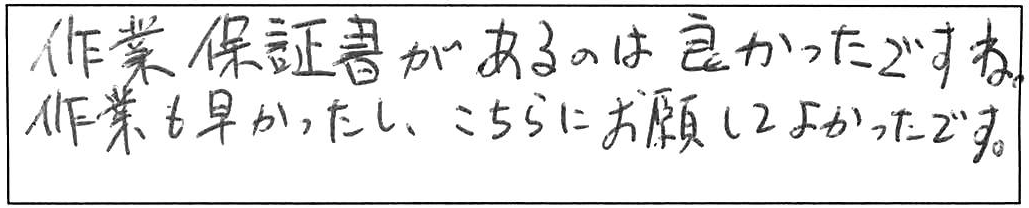 作業保証書があるのは良かったですね。
作業も早かったし、こちらにお願してよかったです。